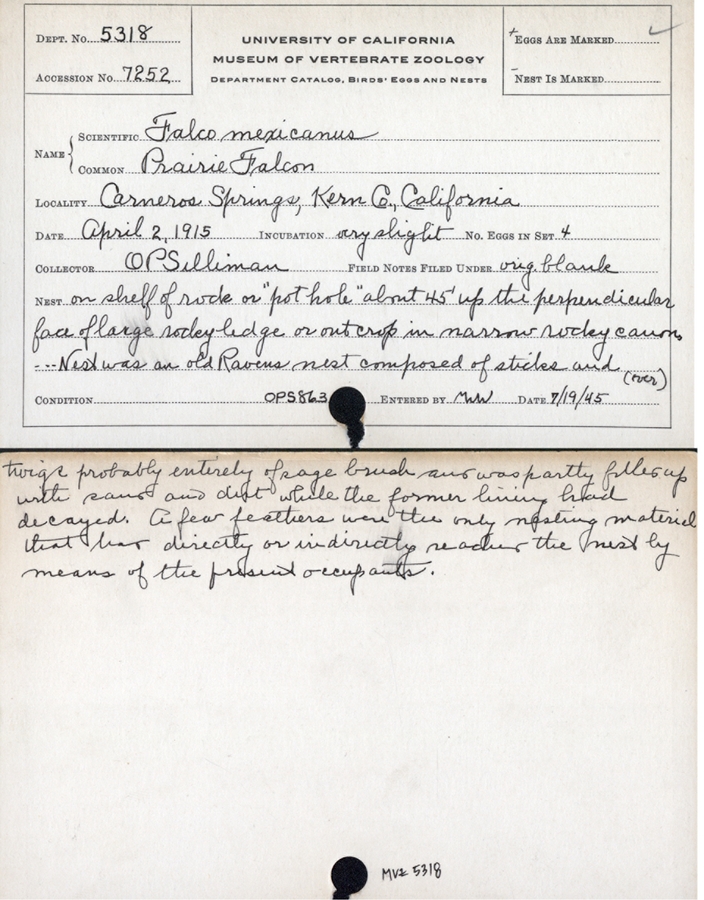 Dept. No. 5318
Accession No. 7252
UNIVERSITY OF CALIFORNIA
MUSEUM OF VERTEBRATE ZOOLOGY
Department Catalog, Birds' Eggs and Nests
+ Eggs Are Marked ✓
- Nest Is Marked
Name { Scientific Falco mexicanus
Common Prairie Falcon
Locality Carneros Springs, Kern Co., California
Date April 2, 1915 Incubation very slight No. Eggs in Set 4
Collector OPSilliman Field Notes Filed Under orig. blank
Nest on shelf of rock or "pot hole" about 45' up the perpendicular
face of large rocky ledge or outcrop in narrow rocky canon,
---Nest was an old Ravens nest composed of sticks and
(over)
Condition OPS863 Entered by MWW Date 7/19/45
twigs probably entirely of sage brush and was partly filled up
with sand and dirt while the former lining had
decayed. A few feathers were the only nesting material
that had directly or indirectly reached the nest by
means of the present occupants.
MVZ 5318